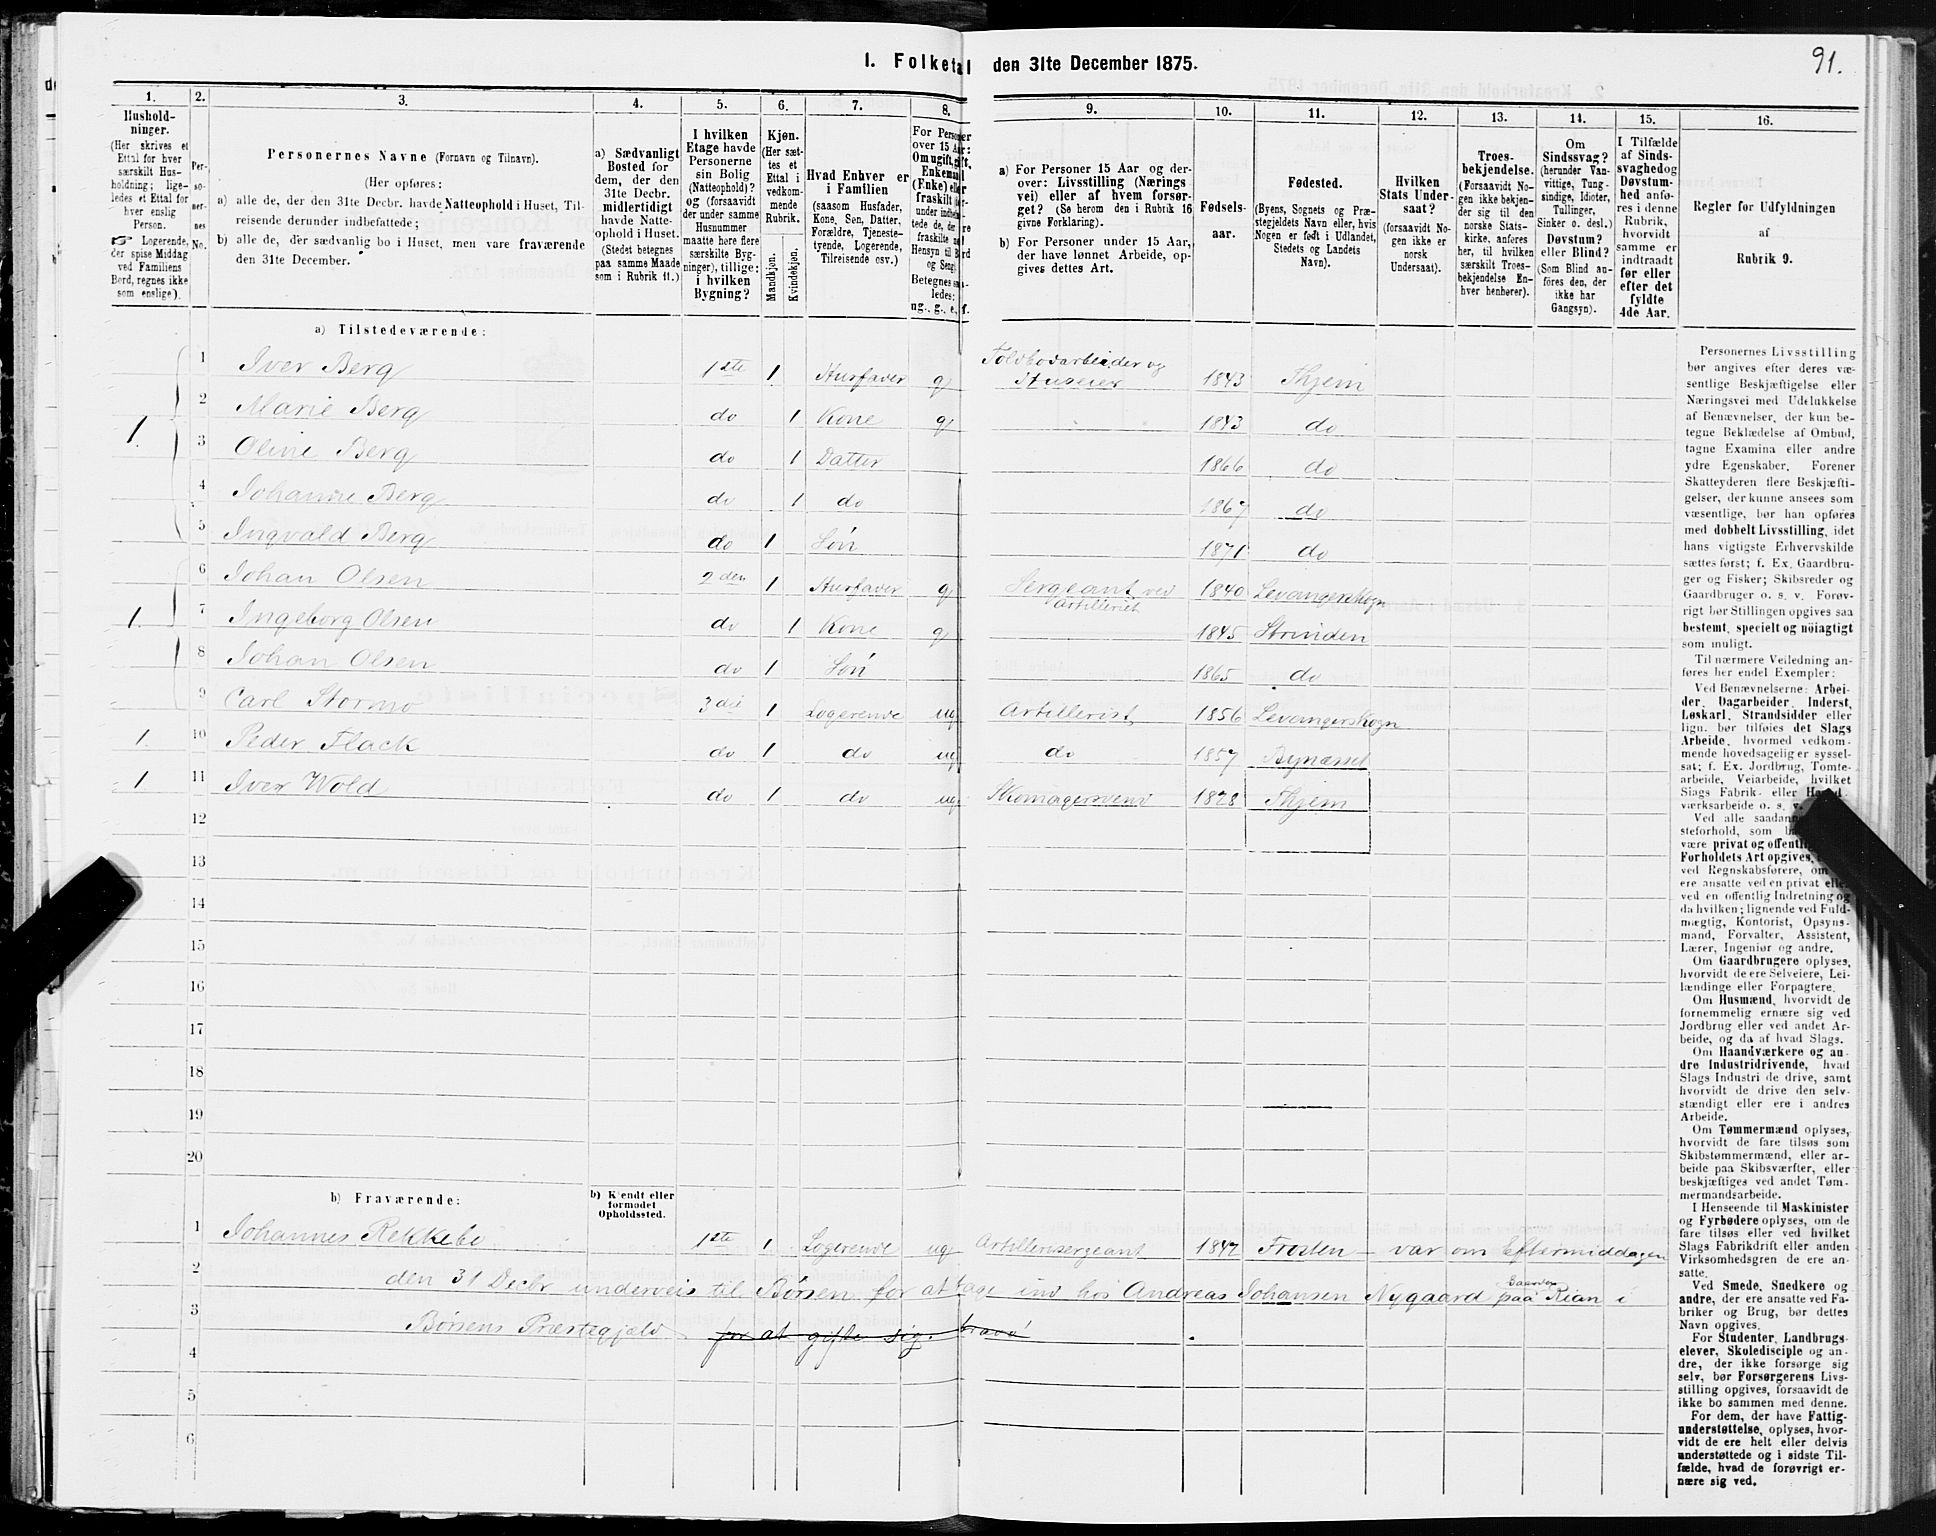 1. Folketal den 31te December 1875.
91.
1. 2. 3. 4. 5. 6. 7. 8. 9. 10. 11. 12. 13. 14. 15. 16.
Hushold-
ninger.
(Her skrives et
Ettal for hver
særskilt Hus-
holdning; lige-
ledes et Ettal for
hver enslig
Person.
☞ Logerende,
der spise Middag
ved Familiens
Bord, regnes ikke
som enslige).
Per-
so-
ner-
nes
No.
Personernes Navne (Fornavn og Tilnavn).
(Her opføres:
a) alle de, der den 31te Decbr. havde Natteophold i Huset, Til-
reisende derunder indbefattede;
b) alle de, der sædvanlig bo i Huset, men vare fraværende
den 31te December.
a) Sædvanligt
Bosted for
dem, der den
31te Decbr.
midlertidigt
havde Natte-
ophold i Huset.
(Stedet betegnes
paa samme Maade
som i Rubrik 11.)
I hvilken
Etage havde
Personerne
sin Bolig
(Natteophold)?
og (forsaavidt
der under samme
Husnummer
maatte høre flere
særskilte Byg-
ninger), tillige:
i hvilken
Bygning?
Kjøn.
(Her sæt-
tes et
Ettal i
vedkom-
mende
Rubrik.
Mandkjøn.
Kvindekjøn.
Hvad Enhver er
i Familien
(saasom Husfader,
Kone, Søn, Datter,
Forældre, Tjeneste-
tyende, Logerende,
Tilreisende osv.)
For Personer
over 15 Aar:
Om ugift, gift,
Enkemand
(Enke) eller
fraskilt
Hensyn til Bord
og Seng.
ug., g., e., f.
a) For Personer 15 Aar og der-
over: Livsstilling (Nærings
vei) eller af hvem forsør-
get? (Se herom den i Rubrik 16
givne Forklaring).
b) For Personer under 15 Aar,
der have lønnet Arbeide, op-
gives dettes Art.
Fødsels-
aar.
Fødested.
(Byens, Sognets og Præ-
stegjeldets Navn eller, hvis
Nogen er født i Udlandet,
Stedets og Landets
Navn).
Hvilken
Stats Under-
saat?
(forsaavidt No-
gen ikke er
norsk
Undersaat).
Troes-
bekjendelse.
(Forsaavidt No-
gen ikke bekjen-
der sig til den
norske Stats-
kirke, anføres
her, til hvilken
særskilt Troes-
bekjendelse En-
hver henhører).
Om
Sindssvag?
(herunder Van-
vittige, Tung-
sindige, Idioter,
Tullinger,
Sinker o. desl.)
Døvstum?
eller Blind?
(Som Blind an-
føres den, der
ikke har
Gangsyn).
I Tilfælde
af Sinds-
svaghed og
Døvstum-
hed anfø-
res i denne
Rubrik,
hvorvidt
samme er
indtraadt
før eller
efter det
fyldte
4de Aar.
Regler for Udfyldningen
af
Rubrik 9.
a) Tilstedeværende:
1 Iver Berg 1ste 1 Husfader g Toldbodarbeider og Huseier 1843 Thjem
1. 2 Marie Berg do 1 Kone g 1843 do
3 Oline Berg do 1 Datter 1866 do
4 Johanne Berg do 1 do 1867 do
5 Ingvald Berg do 1 Søn 1871 do
6 Johan Olsen 2den 1 Husfader g Sergeant ved Artilleriet 1840 Levangerskogn
1. 7 Ingeborg Olsen do 1 Kone g 1845 Strinden
8 Johan Olsen do 1 Søn 1865 do
9 Carl Stormo 3die 1 Logerende ug Artillerist 1856 Levangerskogn
1. 10 Peder Flack do 1 do ug do 1857 Bynæsset
1 11 Iver Wold do 1 do ug Skomagersvend 1828 Thjem
12
13
14
15
16
17
18
19
20
b) Fraværende:
b) Kjendt eller
formodet
Opholdssted.
1 Johannes Rekkebo 1ste 1 Logerende ug Artillerisergeant 1847 Frosten – var om Eftermiddagen
2 den 31 Decbr underveis til Børsen for at tage ind hos Andreas Johansen Nygaard paa Gaarden Rian i
3 Børsens Præstegjeld for at gifte sig.
4
5
6
Personernes Livsstilling
bør angives efter deres væ-
sentlige Beskjæftigelse eller
Næringsvei med Udelukkelse
af Benævnelser, der kun be-
tegne Beklædelse af Ombud,
tagne Examina eller andre
ydre Egenskaber. Forener
Skatteyderen flere Beskjæfti-
gelser, der kunne ansees som
væsentlige, bør han opføres
med dobbelt Livsstilling, idet
hans vigtigste Erhvervskilde
sættes først; f. Ex. Gaardbru-
ger og Fisker; Skibsreder og
Gaardbruger o. s. v. Forøv-
rigt bør Stillingen opgives saa
bestemt, specielt og nöiagtigt
som muligt.
Til nærmere Veiledning an-
føres her endel Exempler:
Ved Benævnelserne: Arbei-
der, Dagarbeider, Inderst,
Løskarl, Strandsidder eller
lign. bør tilføies det Slags
Arbeide, hvormed vedkom-
mende hovedsagelig er syssel-
sat; f. Ex. Jordbrug, Tomte-
arbeide, Veiarbeide, hvilket
Slags Fabrik- eller Haand-
værksarbeide o. s. v.
Ved alle saadanne
steforhold, som
være privat og offentlig
Forholdets Art opgives,
ved Regnskabsførere, om
ere ansatte ved en privat eller
ved en offentlig Indretning og
da hvilken; lignende ved Fuld-
mægtig, Kontorist, Opsyns-
mand, Forvalter, Assistent,
Lærer, Ingeniør og andre.
Om Gaardbrugere oplyses,
hvorvidt de ere Selveiere, Lei-
lændinge eller Forpagtere.
Om Husmænd, hvorvidt de
fornemmelig ernære sig ved
Jordbrug eller ved andet Ar-
beide, og da af hvad Slags.
Om Haandværkere og an-
dre Industridrivende, hvad
Slags Industri de drive, samt
hvorvidt de drive den selv-
stændigt eller ere i andres
Arbeide.
Om Tømmermænd oplyses,
hvorvidt de fare tilsøs som
Skibstømmermænd, eller ar-
beide paa Skibsværfter, eller
beskjæftiges ved andet Tøm-
mermandsarbeide.
I Henseende til Maskinister
og Fyrbødere oplyses, om de
fare tilsøs eller ved hvilket
Slags Fabrikdrift eller anden
Virksomhedsgren de ere an-
satte.
Ved Smede, Snedkere og
andre, der ere ansatte ved Fa-
briker og Brug, bør dettes
Navn opgives.
For Studenter, Landbrugs-
elever, Skoledisciple og an-
dre, der ikke forsørge sig
selv, bør Forsørgerens Livs-
stilling opgives, forsaavidt de
ikke bo sammen med denne.
For dem, der have Fattig-
understøttelse, oplyses, hvor-
vidt de ere helt eller delvis
understøttede og i sidste Til-
fælde, hvad de forøvrigt er-
nære sig ved.